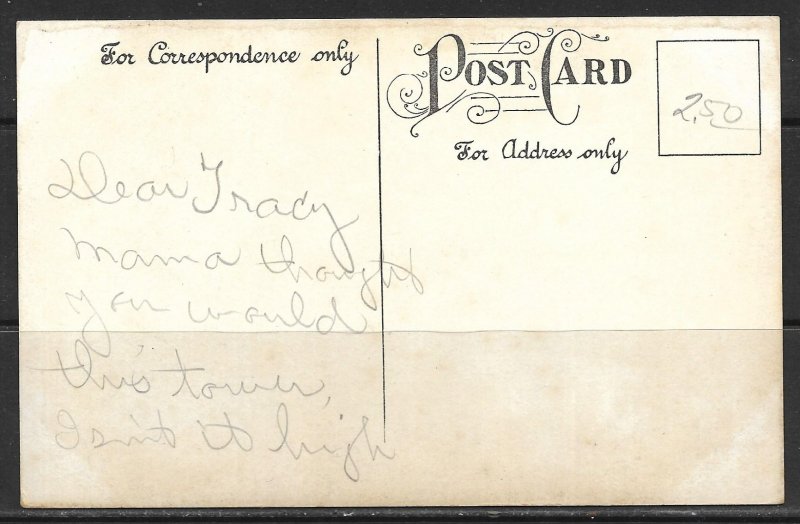 For Correspondence only
POST CARD
For Address only
2.50
Dear Tracy
Mama thought
you would
this tower,
Isn't it high